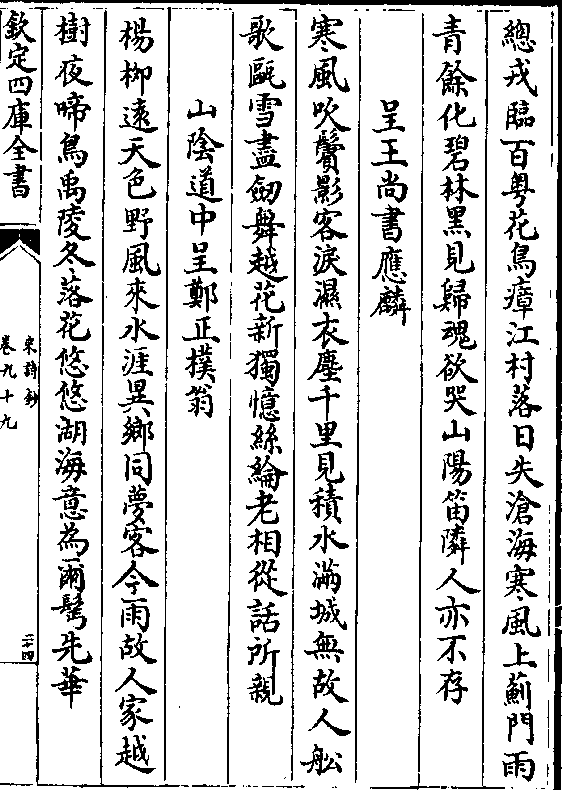 總戎臨百粤花鳥瘴江村落日失滄海寒風上薊門雨
青餘化碧林黑見歸魂欲哭山陽笛隣人亦不存
呈王尚書應麟
寒風吹鬢影客淚濕衣塵千里見積水滿城無故人舩
歌甌雪盡劒舞越花新獨憶絲綸老相從話所親
山陰道中呈鄭正樸翁
楊柳遠天色野風來水涯異鄉同夢客今雨故人家越
樹夜啼鳥禹陵冬落花悠悠湖海意為爾髩先華
欽定四庫全書
宋詩鈔
卷九十九
二十四